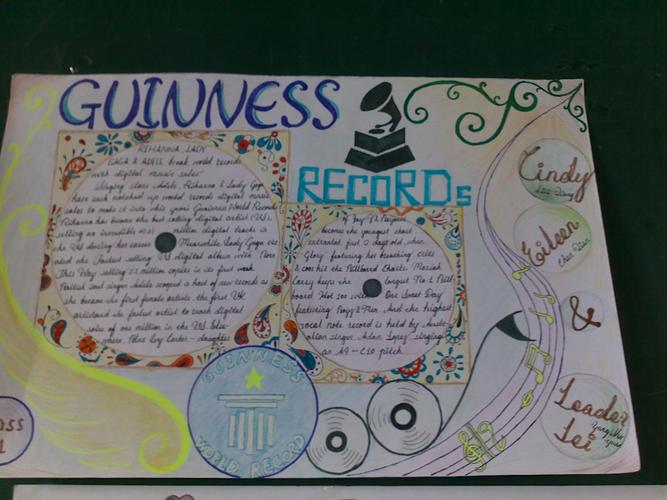 GUINNESS
RECORDs
RIHANNA LADY
GAGA & ADELE break world records
with digital music sales
Singing stars Adele, Rihanna & Lady Gaga
have each notched up world records digital music
sales to make it into this years Guinness World Records
Rihanna has become the best selling digital artist
selling an incredible million digital tracks in
the US during her career Meanwhile Lady Gaga
the fastest selling US digital album with Born
This Way selling million copies in its first week
British soul singer Adele scooped a host of new records as
she became the first female artist the first UK
artist and the fastest artist to reach digital
sales of one million in the
where Blue Ivy Carter daughter
of Jay-Z
became the youngest chart
entrant at just 2 days old when
Glory featuring her breathing cries
& coos hit the Billboard Charts Mariah
Carey keeps the longest No.1 Bill
board Hot 100 with One Sweet Day
featuring Boyz 2 Men And the highest
vocal note record is held by
singer Adam Lopez singing
an pitch
GUINNESS
WORLD RECORD
Cindy
Eileen
&
Leader
Lei